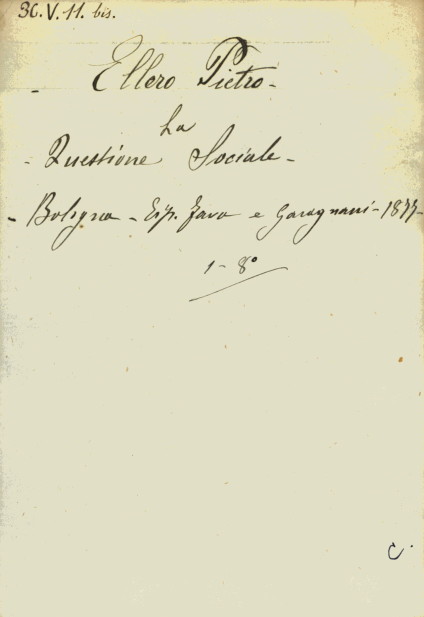 36.V.11. bis.
Ellero Pietro -
La
- Questione Sociale -
- Bologna - Tip. Fava e Garagnani - 1877 -
1 - 8°
C.